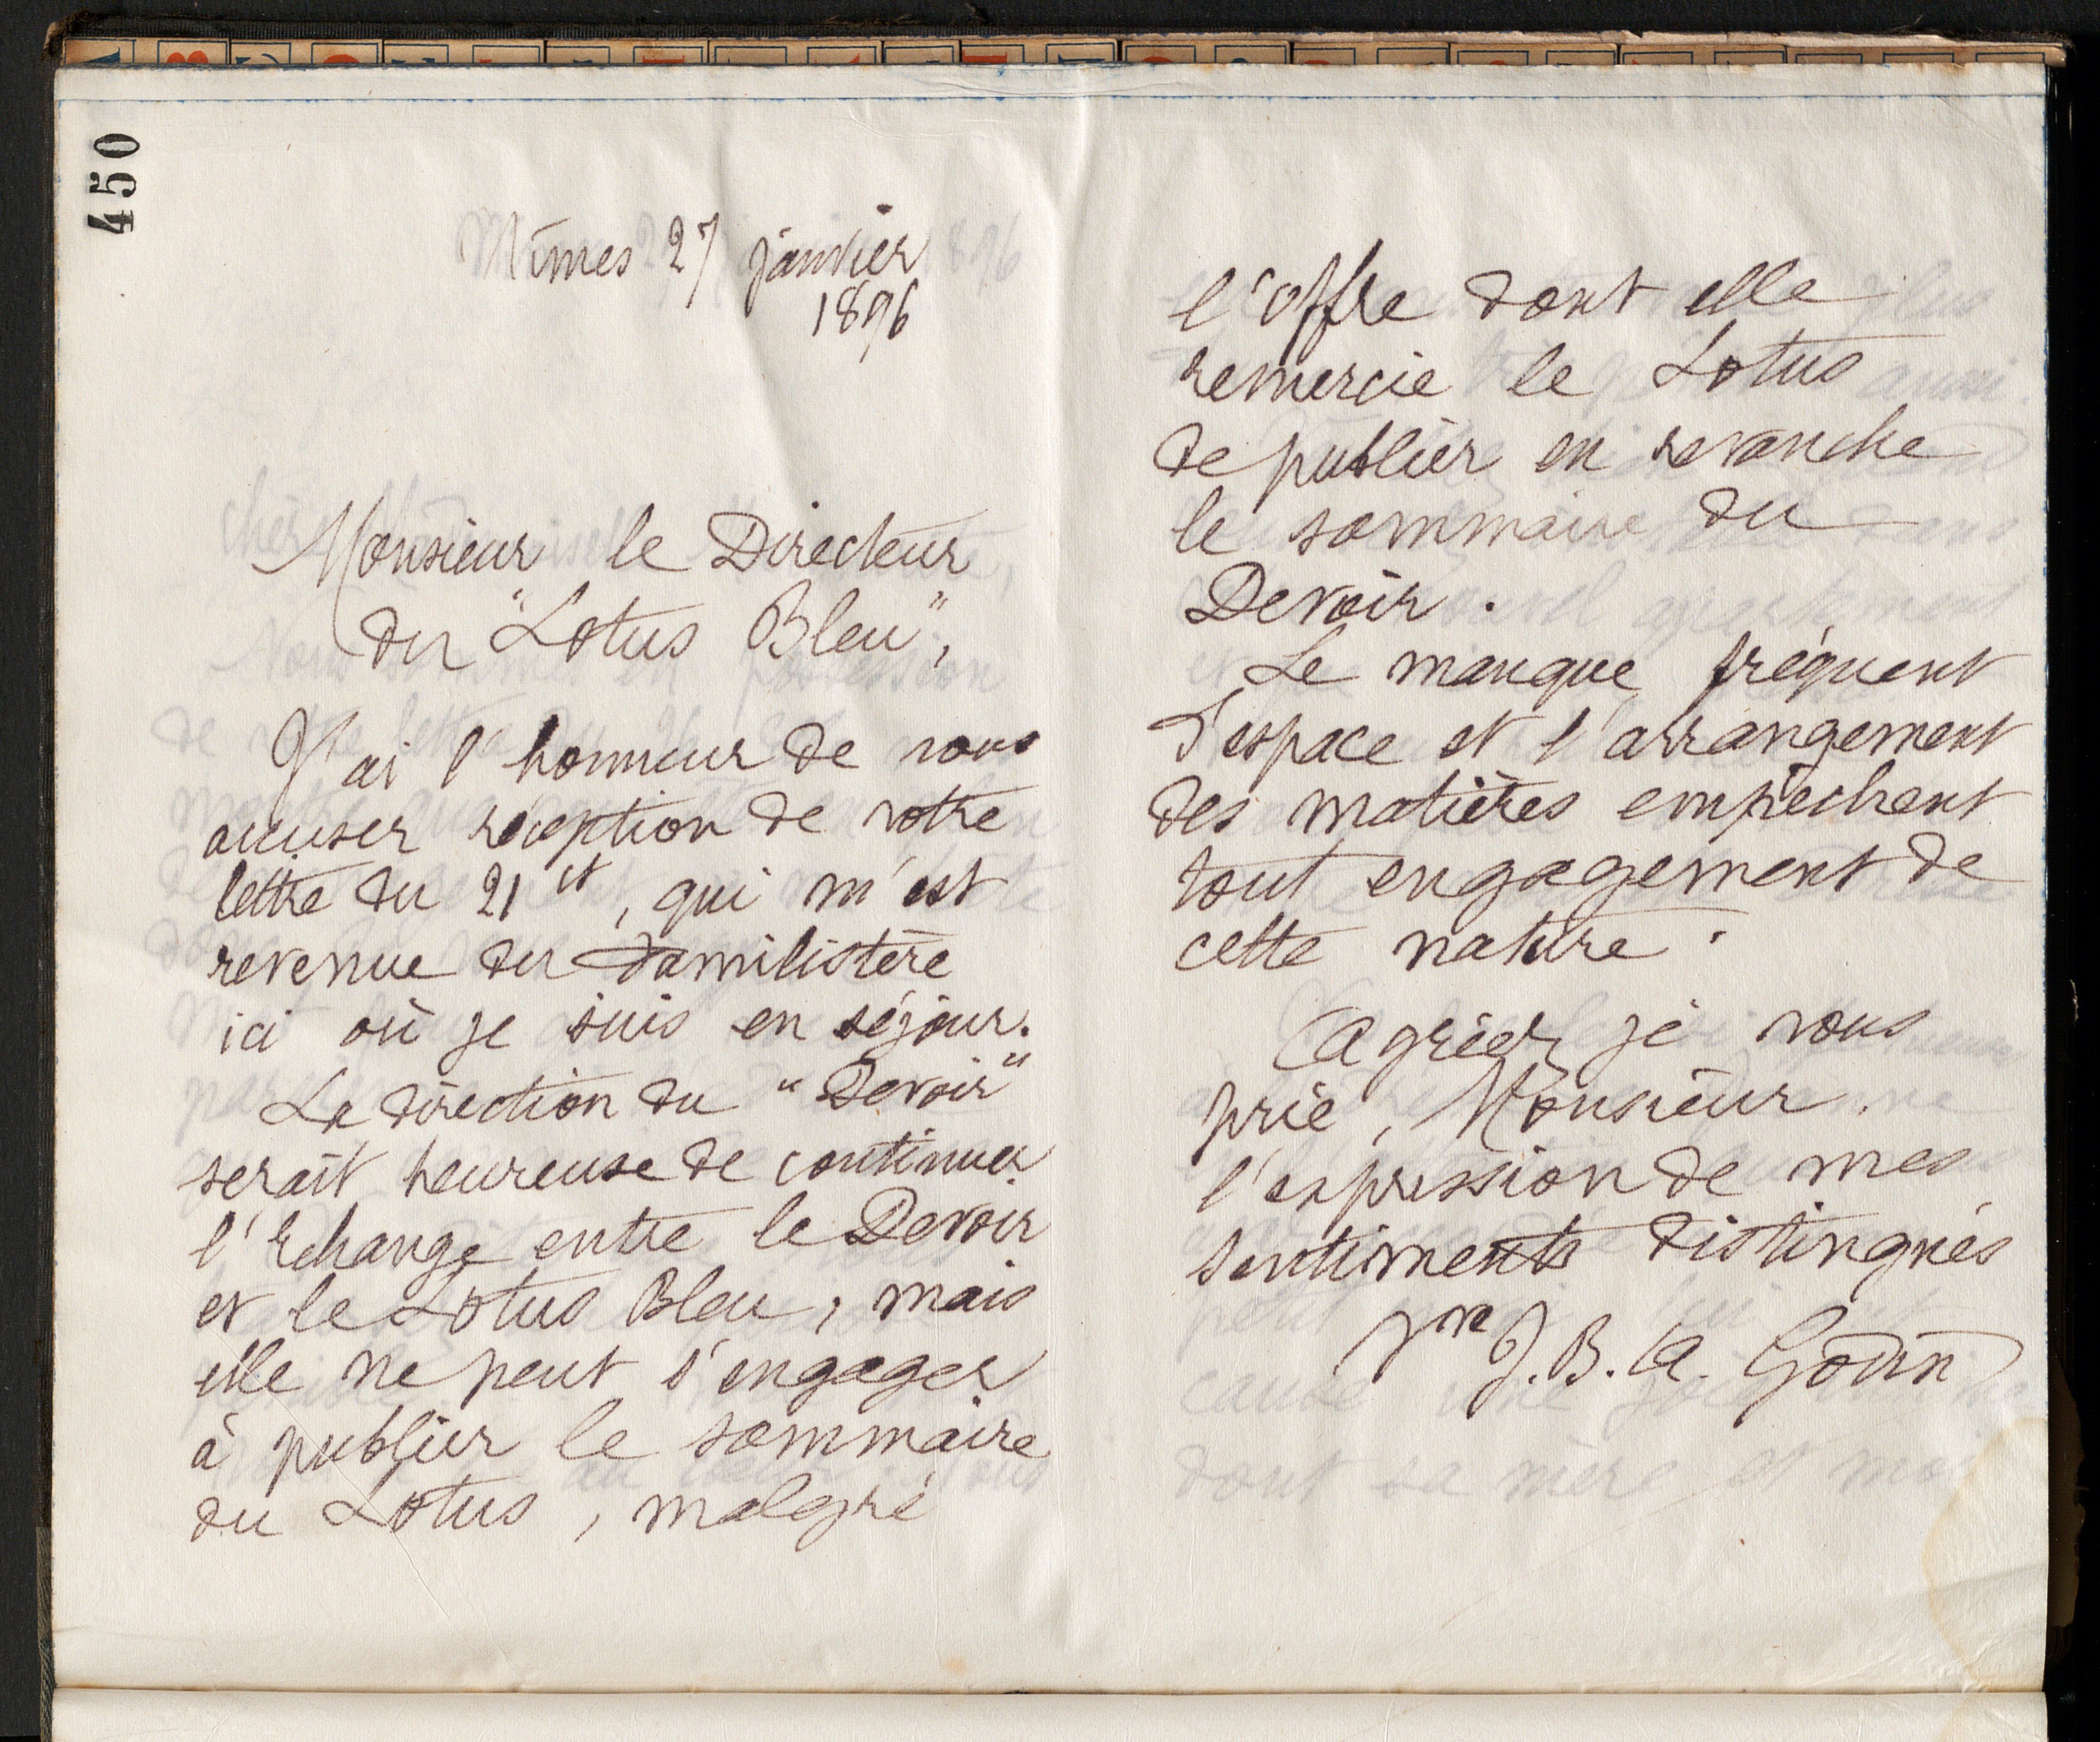 450
Nîmes 27 janvier
1896
Monsieur le Directeur
du "Lotus Bleu",
J'ai l'honneur de vous
accuser réception de votre
lettre du 21 ct, qui m'est
revenue du Familistère
ici où je suis en séjour.
La direction du "Devoir"
serait heureuse de continuer
l'échange entre le Devoir
et le Lotus Bleu, mais
elle ne peut s'engager
à publier le sommaire
du Lotus, malgré
l'offre dont elle
remercie le Lotus
de publier en revanche
le sommaire du
Devoir.
Le manque fréquent
d'espace et l'arrangement
des matières empêchent
tout engagement de
cette nature.
Agréez, je vous
prie, Monsieur,
l'expression de mes
sentiments distingués
Vve J. B. A. Godin